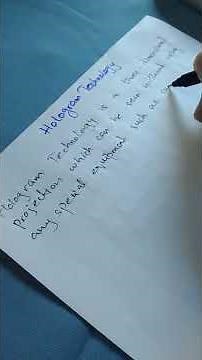 Hologram Technology
Hologram Technology is a three dimensional
projection which can be seen without using
any special equipment such as